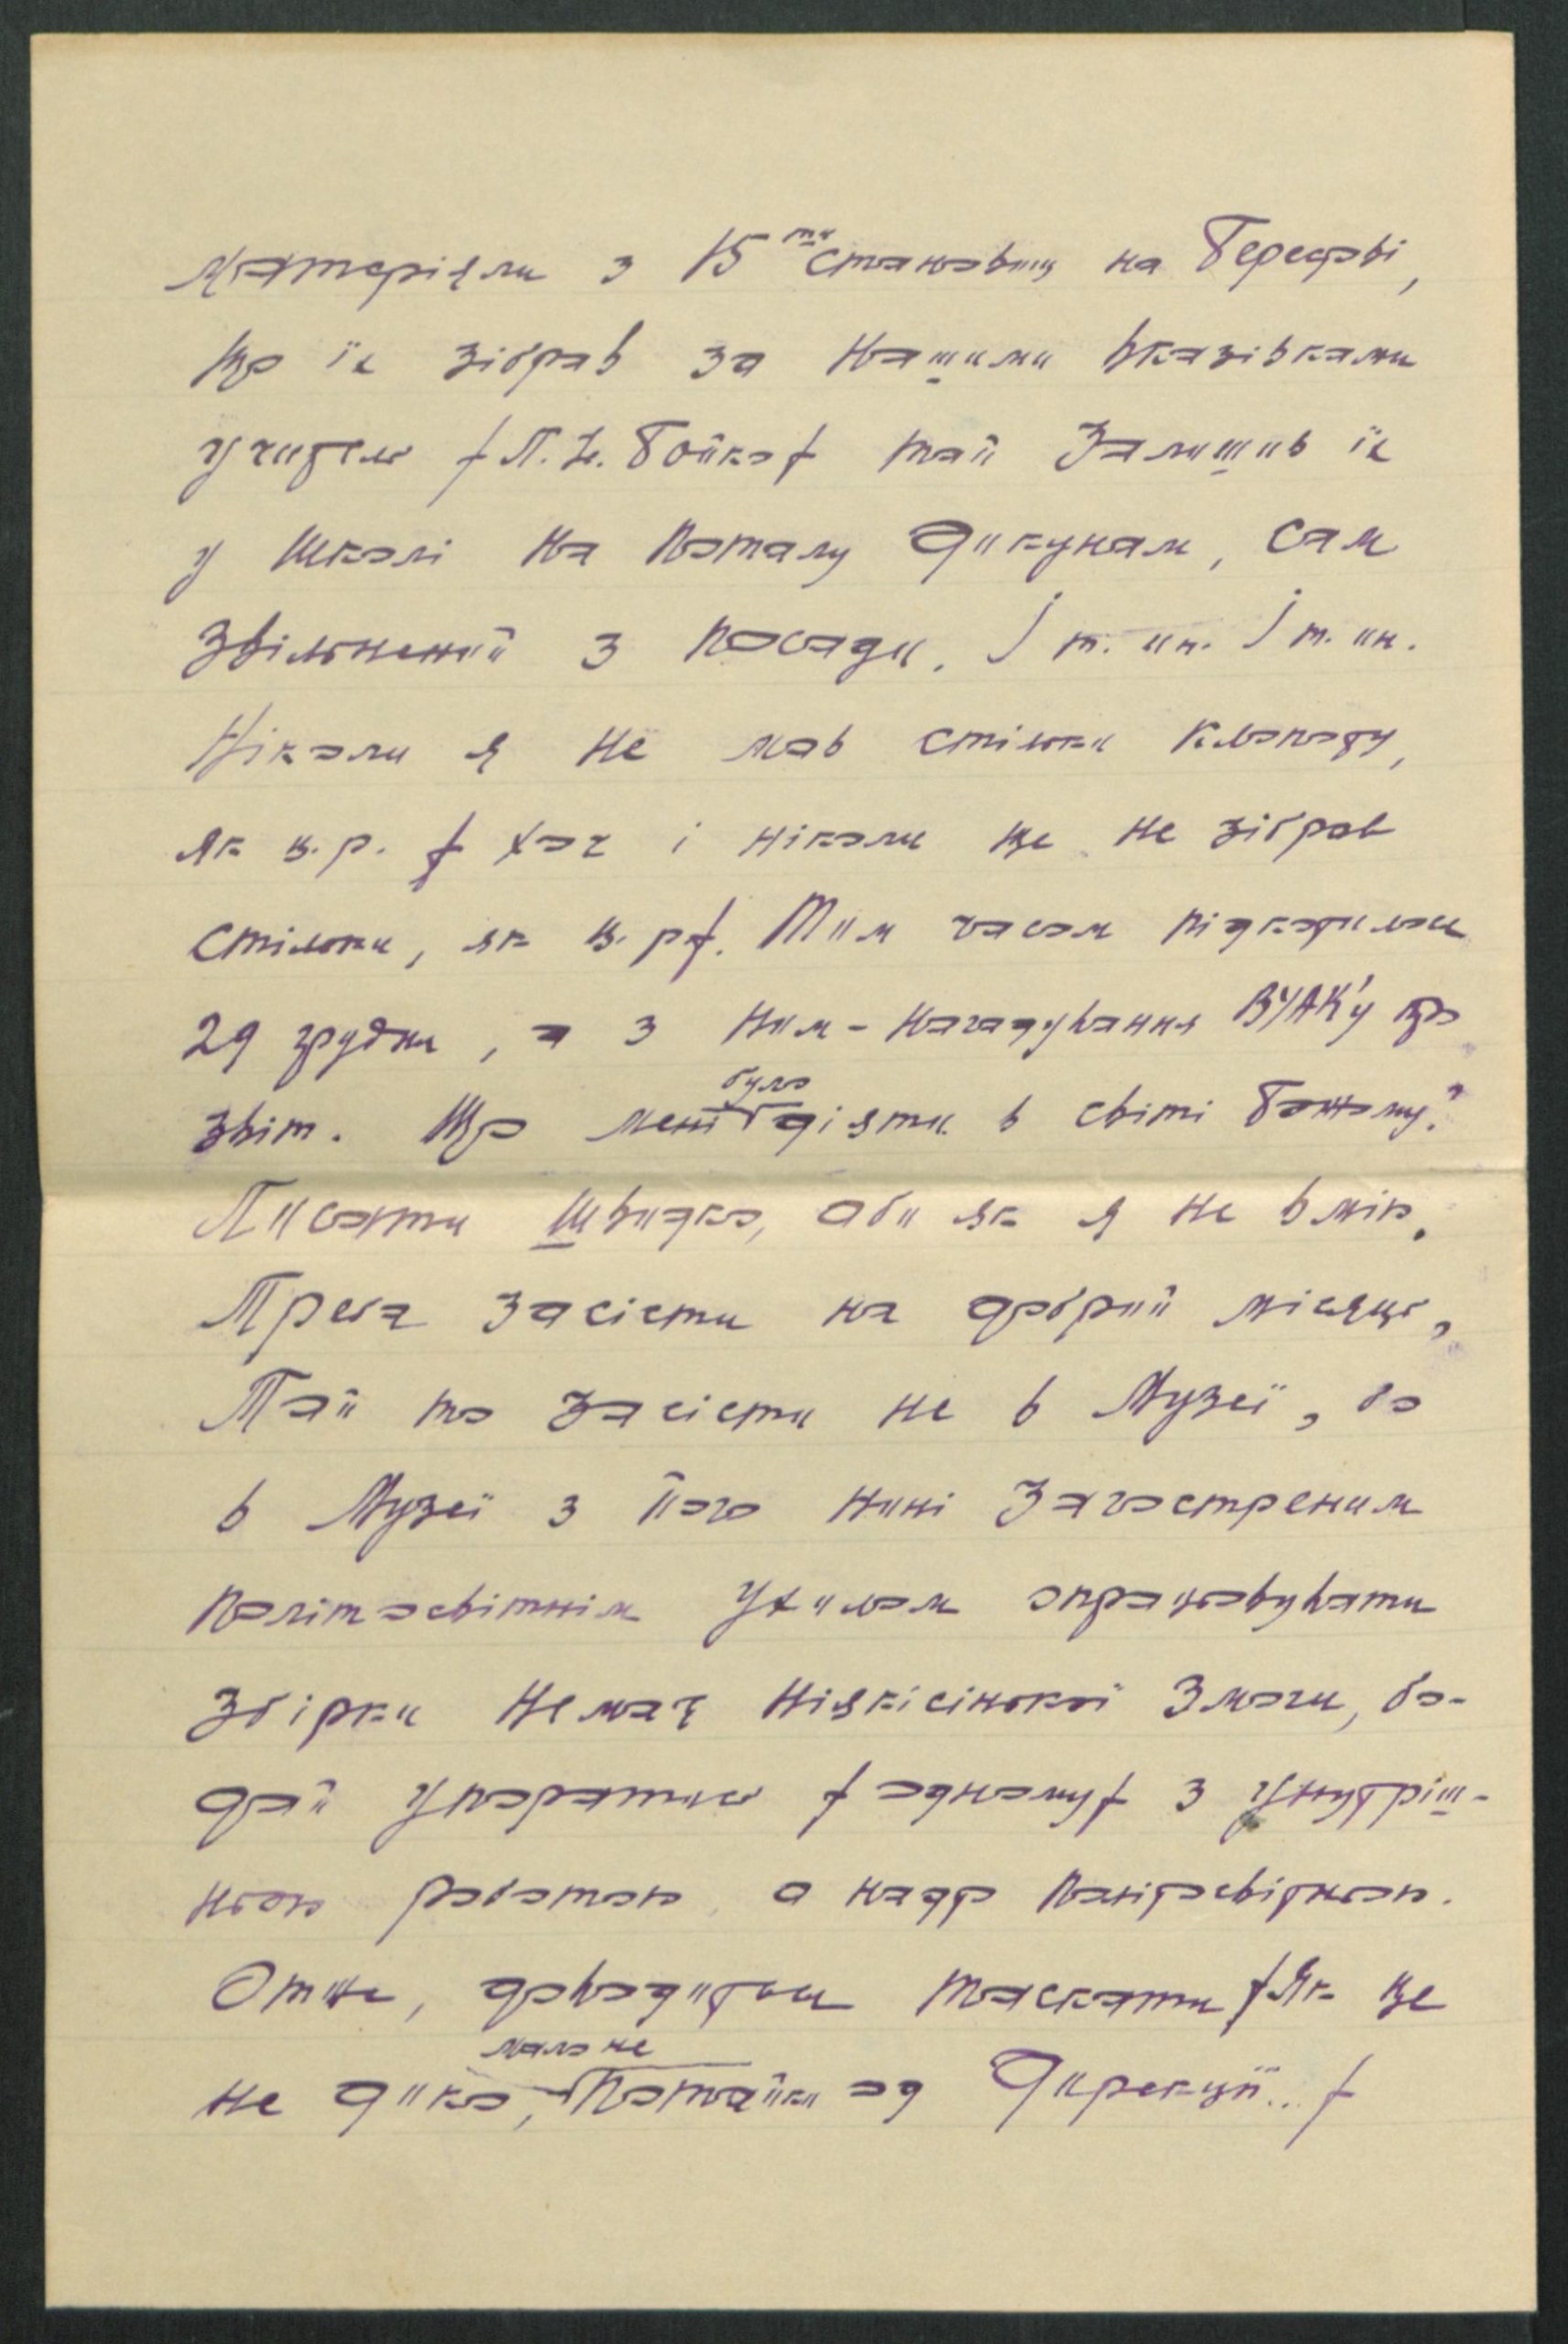 матеріяли з 15ти становищ на Берефві,
що їх зібрав за нашими вказівками
учитель (П. І. Бойко) тай залишив їх
у школі на поталу дикунам, сам
звільнений з посади. І т. ин. І т. ин.
Ніколи я не мав стільки клопоту,
як ц.р. (хоч і ніколи ще не зібрав
стільки, як ц.р.). Тим часом підкотилось
29 грудня, а з ним - нагадування ВУАК'у про
звіт. Що мені було діяти в світі божому?
Писати швидко, аби як я не вмію.
Треба засісти на добрий місяць,
Тай то засісти не в Музеї, бо
в Музеї з його нині загостреним
політосвітнім ухилом опрацьовувати
збірки немає ніякісінької змоги, бо-
дай упоратись (одному) з унутріш-
ньою роботою, а надто політосвітньою.
Отже, доводиться таскати (як це
не дико, мало не потайки од Дирекції...)